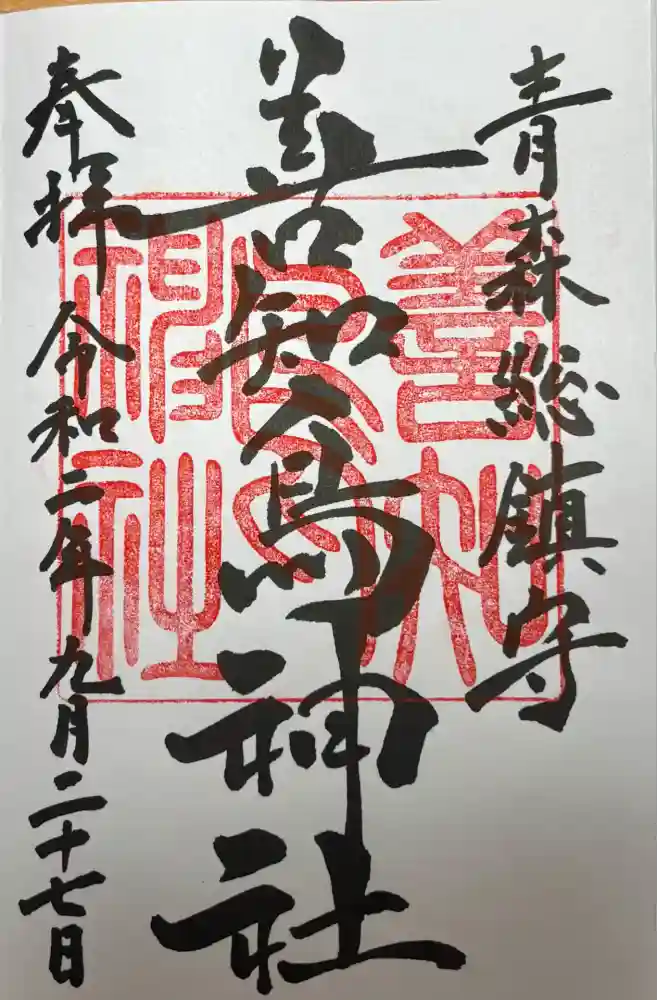 青森総鎮守
善知鳥神社
奉拝 令和二年九月二十七日
善知鳥神社